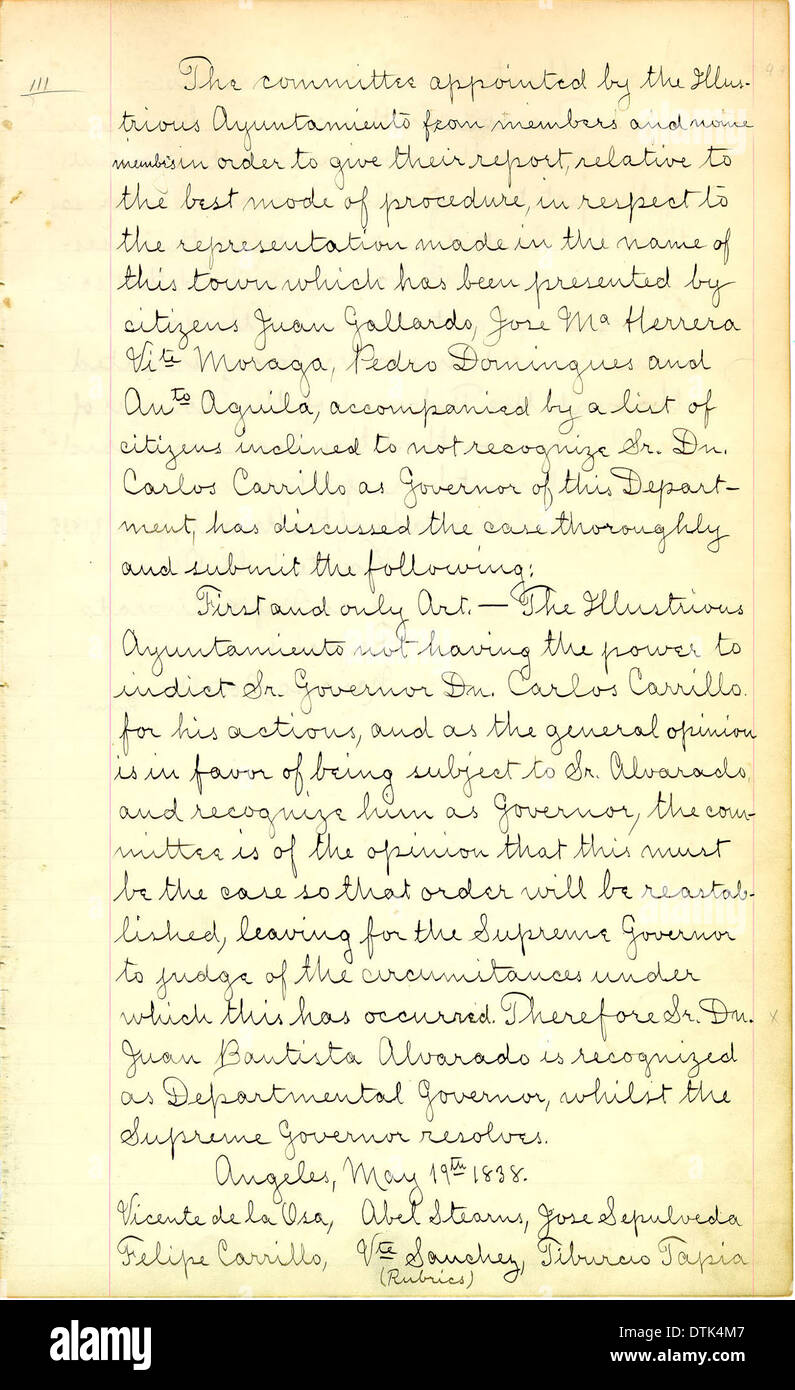 111
The committee appointed by the Illus-
trious Ayuntamiento from members and none
members in order to give their report, relative to
the best mode of procedure, in respect to
the representation made in the name of
this town which has been presented by
citizens Juan Gallardo, Jose Ma Herrera
Vite Moraga, Pedro Domingues and
Anto Aguila, accompanied by a list of
citizens inclined to not recognize Sr. Dn.
Carlos Carrillo as Governor of this Depart-
ment, has discussed the case thoroughly
and submit the following:
First and only Art. — The Illustrious
Ayuntamiento not having the power to
indict Sr. Governor Dn. Carlos Carrillo.
for his actions, and as the general opinion
is in favor of being subject to Sr. Alvarado,
and recognize him as Governor, the com-
mittee is of the opinion that this must
be the case so that order will be reastab-
lished, leaving for the Supreme Governor
to judge of the circumitances under
which this has occurred. Therefore Sr. Dn. x
Juan Bautista Alvarado is recognized
as Departmental Governor, whilst the
Supreme Governor resolves.
Angeles, May 19th 1838.
Vicente de la Osa, Abel Stearns, Jose Sepulveda
Felipe Carrillo, Vte Sanchez, Tiburcio Tapia
(Rubrics)
alamy
Image ID: DTK4M7
www.alamy.com